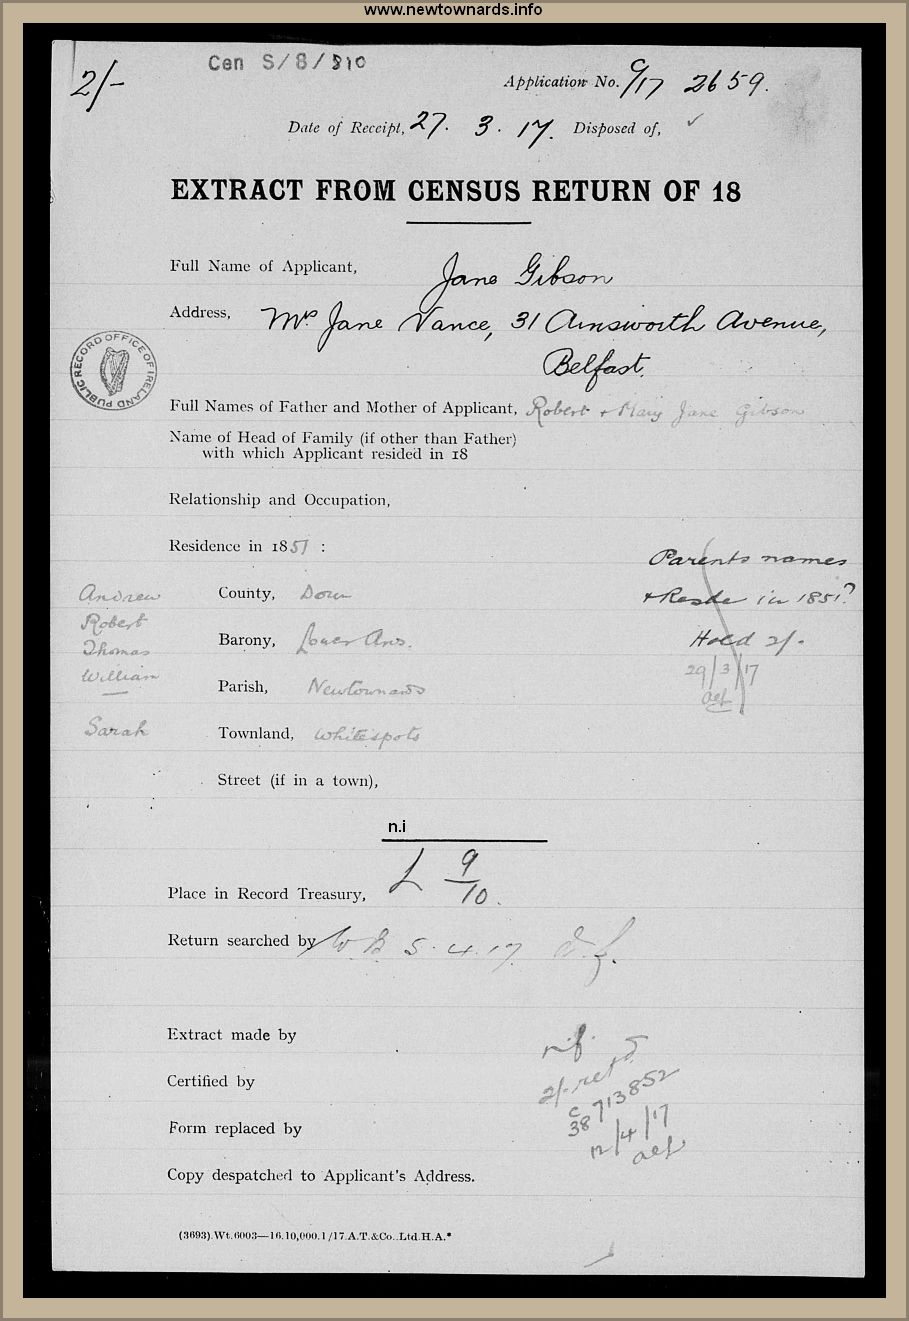 www.newtownards.info
Cen S/8/310
2/-
Application No. C/17 2659.
Date of Receipt, 27. 3. 17. Disposed of, ✓
EXTRACT FROM CENSUS RETURN OF 18
Full Name of Applicant, Jane Gibson
Address, Mrs Jane Vance, 31 Ainsworth Avenue,
Belfast.
PUBLIC RECORD OFFICE OF IRELAND
Full Names of Father and Mother of Applicant, Robert + Mary Jane Gibson
Name of Head of Family (if other than Father)
with which Applicant resided in 18
Relationship and Occupation,
Residence in 1851 :
Parents names
+ Resde in 1851?
Hold 2/-
29/3/17
aef
Andrew
Robert
Thomas
William
Sarah
County, Down
Barony, Lower Ards.
Parish, Newtownards
Townland, Whitespots
Street (if in a town),
n.i
Place in Record Treasury, L 9/10.
Return searched by W B 5.4.17
Extract made by
n.f.
Certified by
2/- retd
C/38 713852
Form replaced by
12/4/17
aef
Copy despatched to Applicant's Address.
(3693).Wt.6003—16.10,000.1/17.A.T.&Co.,Ltd.H.A.*